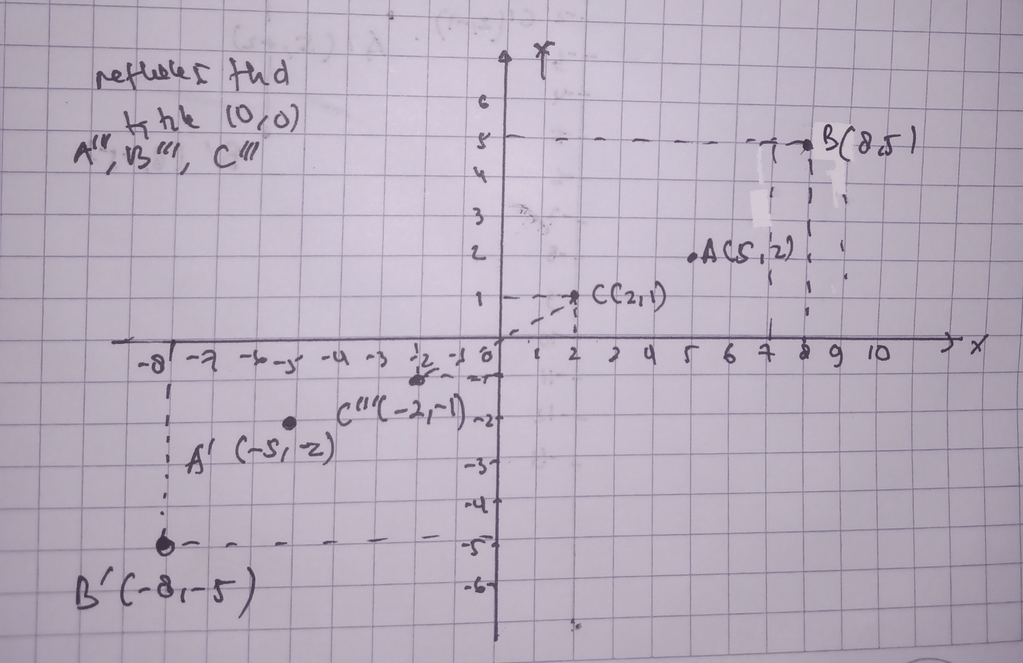 refleksi thd
ttk (0,0)
A''', B''', C'''
Y
6
5
B(8,5)
4
3
2
A(5,2)
1
C(2,1)
-8 -7 -6 -5 -4 -3 -2 -1 0 1 2 3 4 5 6 7 8 9 10 X
-1
C'''(-2,-1)
-2
A' (-5,-2)
-3
-4
-5
B'(-8,-5)
-6